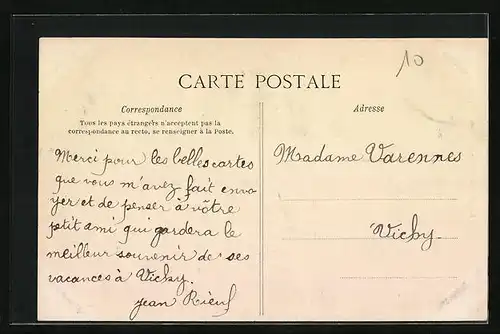 10
CARTE POSTALE
Correspondance
Tous les pays étrangers n'acceptent pas la
correspondance au recto, se renseigner à la Poste.
Merci pour les belles cartes
que vous m'avez fait envo
yer et de penser à vôtre
ptit ami qui gardera le
meilleur souvenir de ses
vacances à Vichy.
Jean
Adresse
Madame Varennes
Vichy